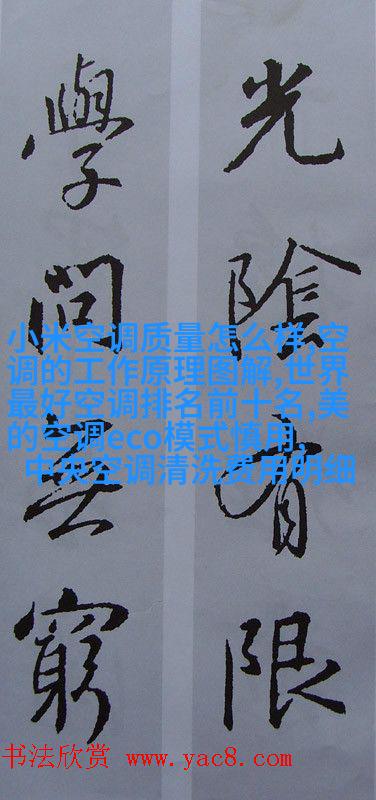 光陰有限
學問無窮
小米空调质量怎么样,空
调的工作原理图解,世界
最好空调排名前十名,美
的空调eco模式慎用,
中央空调清洗费用明细
书法欣赏 www.yac8.com